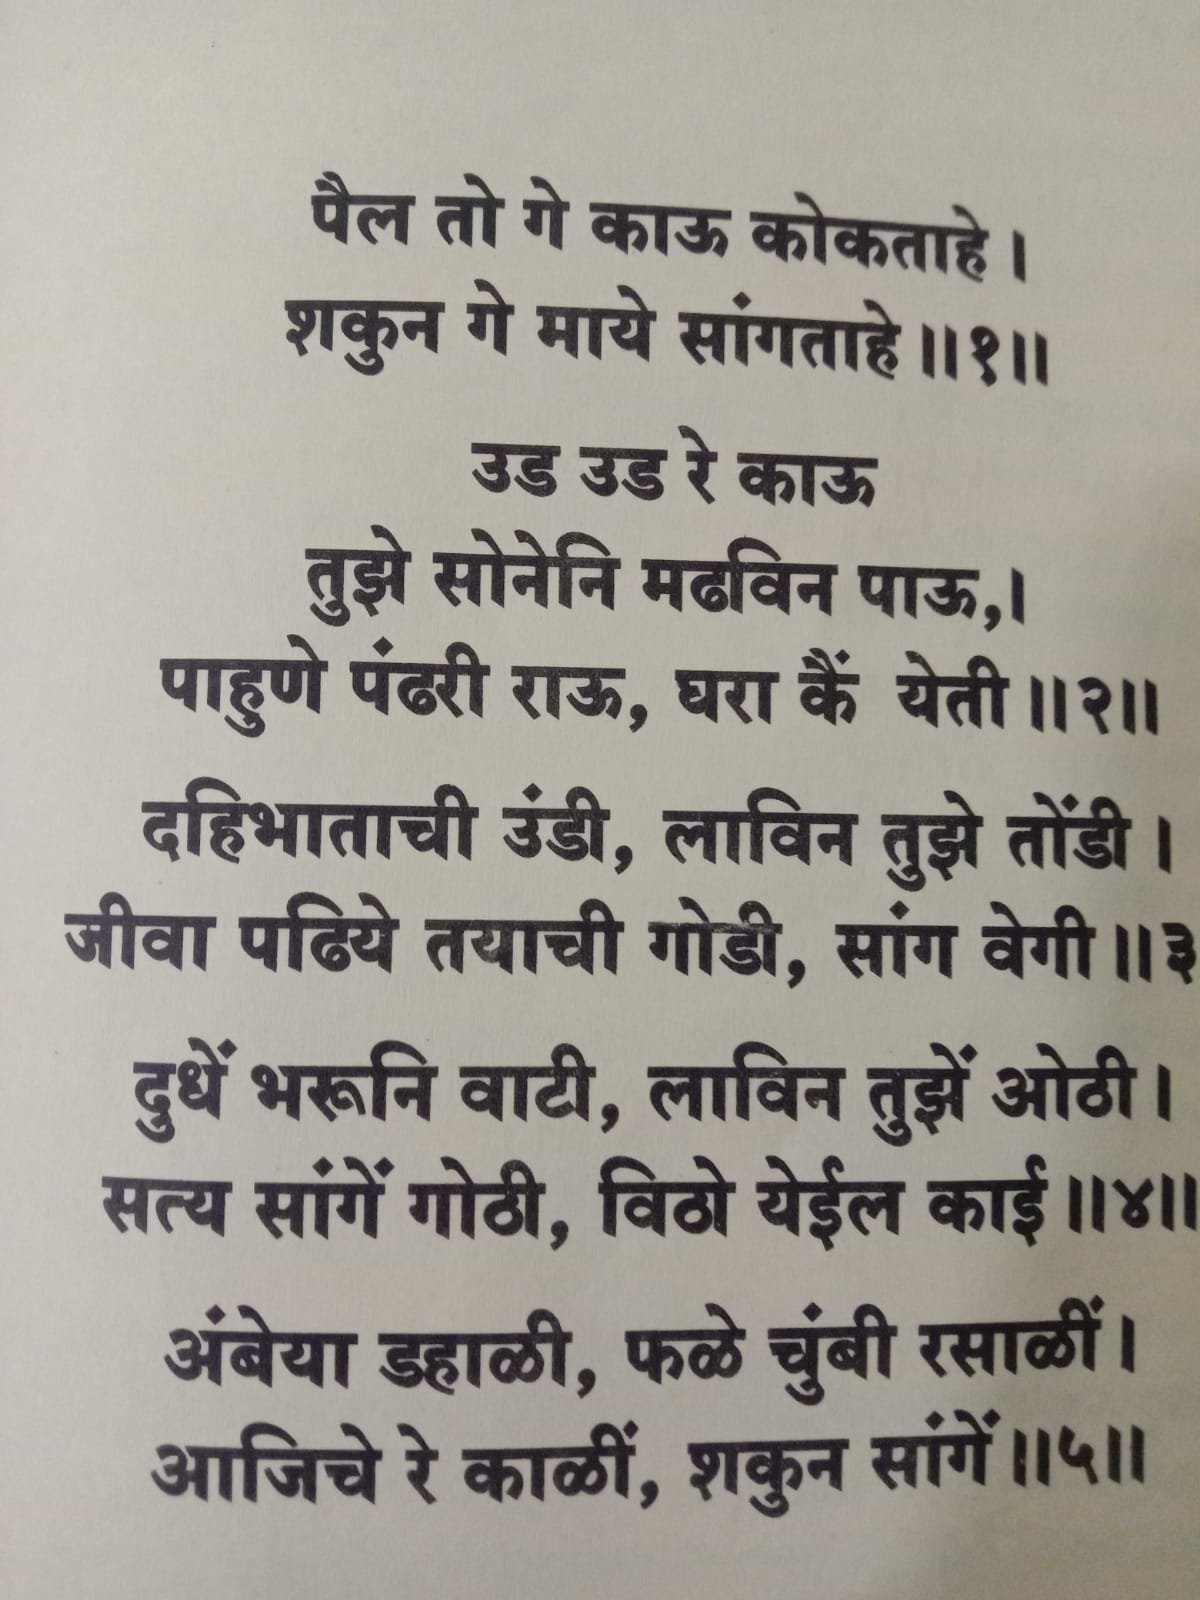 पैल तो गे काऊ कोकताहे ।
शकुन गे माये सांगताहे ॥१॥
उड उड रे काऊ
तुझे सोनेनि मढविन पाऊ,।
पाहुणे पंढरी राऊ, घरा कैं येती ॥२॥
दहिभाताची उंडी, लाविन तुझे तोंडी ।
जीवा पढिये तयाची गोडी, सांग वेगी ॥३
दुधें भरूनि वाटी, लाविन तुझें ओठी ।
सत्य सांगें गोठी, विठो येईल काई ॥४॥
अंबेया डहाळी, फळे चुंबी रसाळीं ।
आजिचे रे काळीं, शकुन सांगें ॥५॥